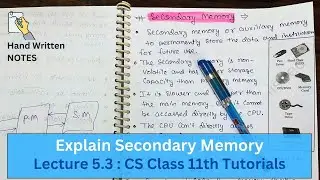 Hand Written
NOTES
* Secondary Memory
• Secondary memory or auxiliary memory
to permanently store the data and instruction
for future use.
• The secondary memory is non-
volatile and has larger storage
Capacity than primary memory
• It is slower and
the main memory. It cannot
be accessed directly by the CPU.
• The CPU can't directly
P.M.
S.M.
Explain Secondary Memory
Lecture 5.3 : CS Class 11th Tutorials